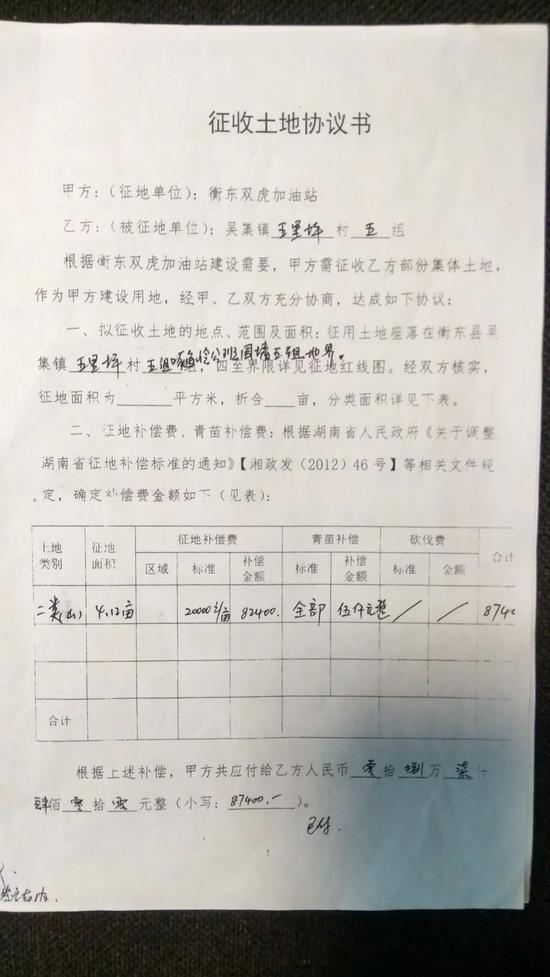 征收土地协议书
甲方：（征地单位）：衡东双虎加油站
乙方：（被征地单位）：吴集镇 五星坪 村 五 组
根据衡东双虎加油站建设需要，甲方需征收乙方部份集体土地，
作为甲方建设用地，经甲、乙双方充分协商，达成如下协议：
一、拟征收土地的地点、范围及面积：征用土地座落在衡东县吴
集镇 五星坪 村 五组 围墙五组地界。四至界限详见征地红线图。经双方核实，
征地面积为______平方米，折合___亩，分类面积详见下表。
二、征地补偿费、青苗补偿费：根据湖南省人民政府《关于调整
湖南省征地补偿标准的通知》【湘政发（2012）46号】等相关文件规
定，确定补偿费金额如下（见表）：
土地类别 征地面积 征地补偿费 青苗补偿 砍伐费 合计
区域 标准 补偿金额 标准 补偿金额 标准 金额
二类(山) 4.12亩 20000元/亩 82400. 全部 伍仟元整 / / 874
合计
根据上述补偿，甲方共应付给乙方人民币 零 拾 捌 万 柒 仟
肆佰 零 拾 零 元整（小写：87400.-）。
已付.
1